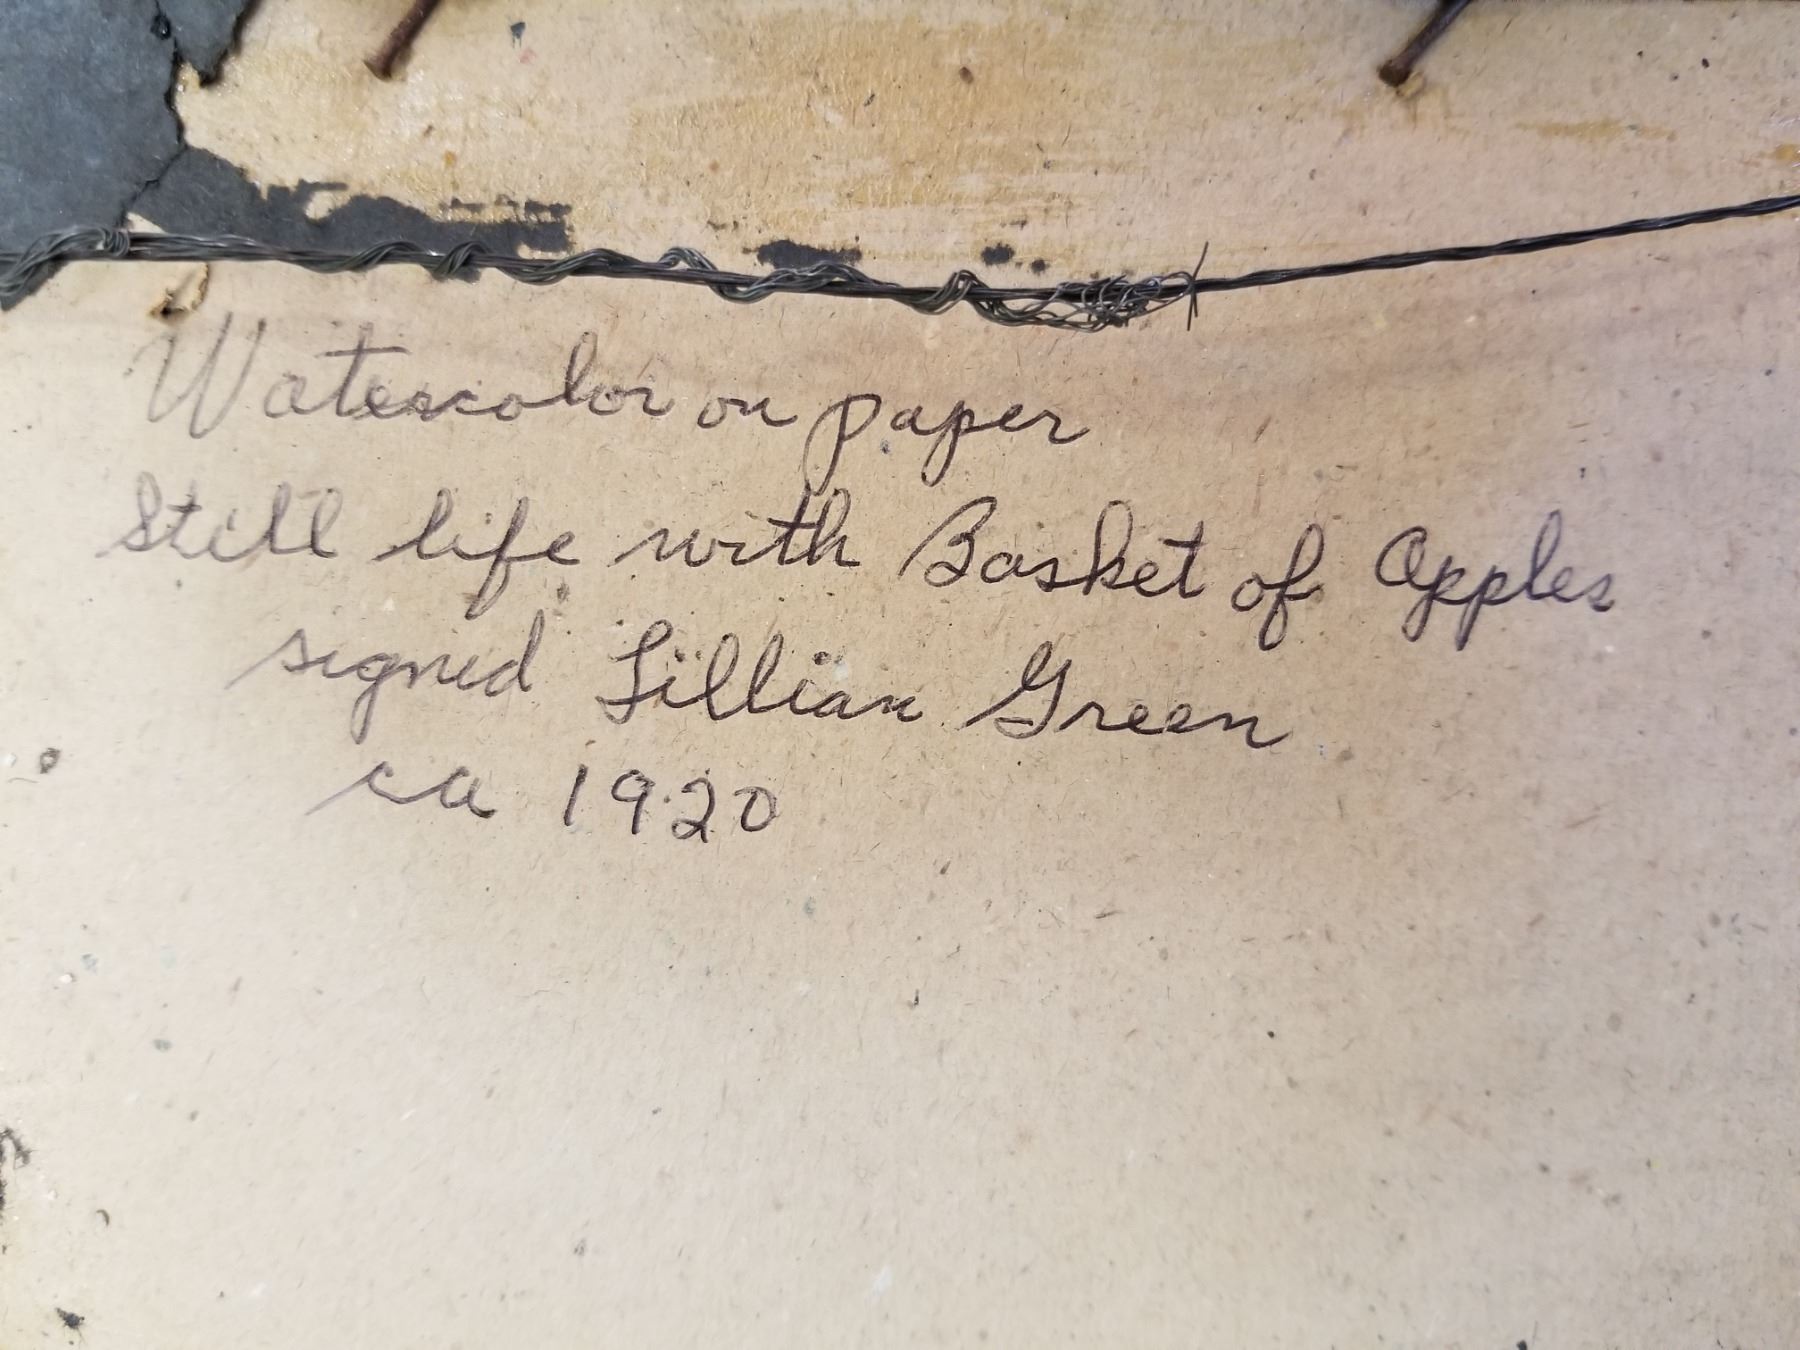 Watercolor on paper
Still life with Basket of Apples
signed Lillian Green
ca 1920